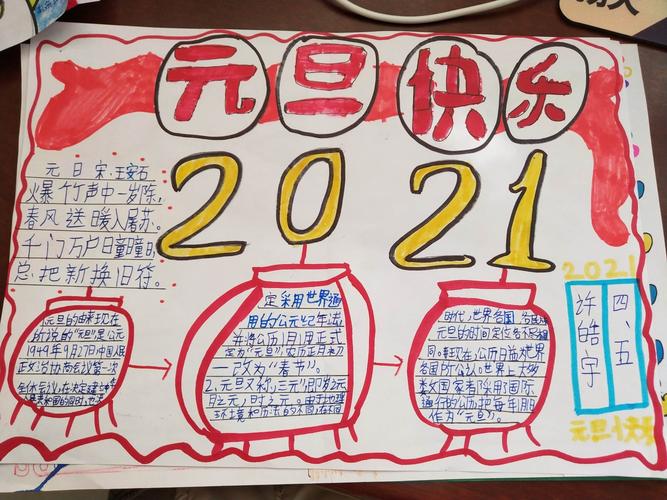 元旦快乐
2021
元日 宋:王安石
火暴竹声中一岁除,
春风送暖入屠苏。
千门万户日瞳瞳日,
总把新换旧符。
元旦的由来现在
所说的"元旦"是公元
1949年9月27日中国人民
正文治协商会议第一次
全体会议,在决定建
定采用世界通
用的公元纪年法
并将公历1月1日正式
定为"元旦",农历正月初
一改为"春节"。
2.元旦又称"三元",即岁之元
月之元,时之元。由于地理
环境和历法的不同,在不同
时代,世界各国,各民
元旦的时间定位各不相
同。现在,公历1月1为世界
各国所公认。世界上大多
数国家者采用了国际
通行的公历,把每年1月1
作为"元旦"。
2021
四、五
许皓宇
元旦快乐